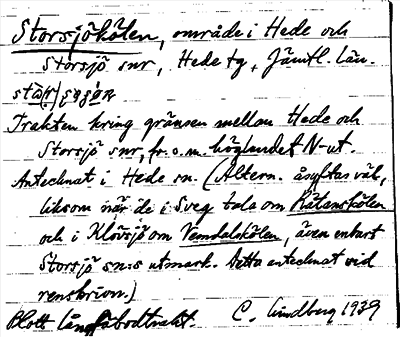 Storsjökölen, område i Hede och
Storsjö snr, Hede tg, Jämtl. län.
Trakten kring gränsen mellan Hede och
Storsjö snr, fr. o. m. höglandet N-ut.
Antecknat i Hede sn. (Altern. åsyftas väl,
liksom när de i Sveg tala om Rätanskölen
och i Klövsjö om Vemdalskölen, även enbart
Storsjö sn:s utmark. Detta antecknat vid
renskrivn.)
Blott långfäbodtrakt. C. Lindberg 1939